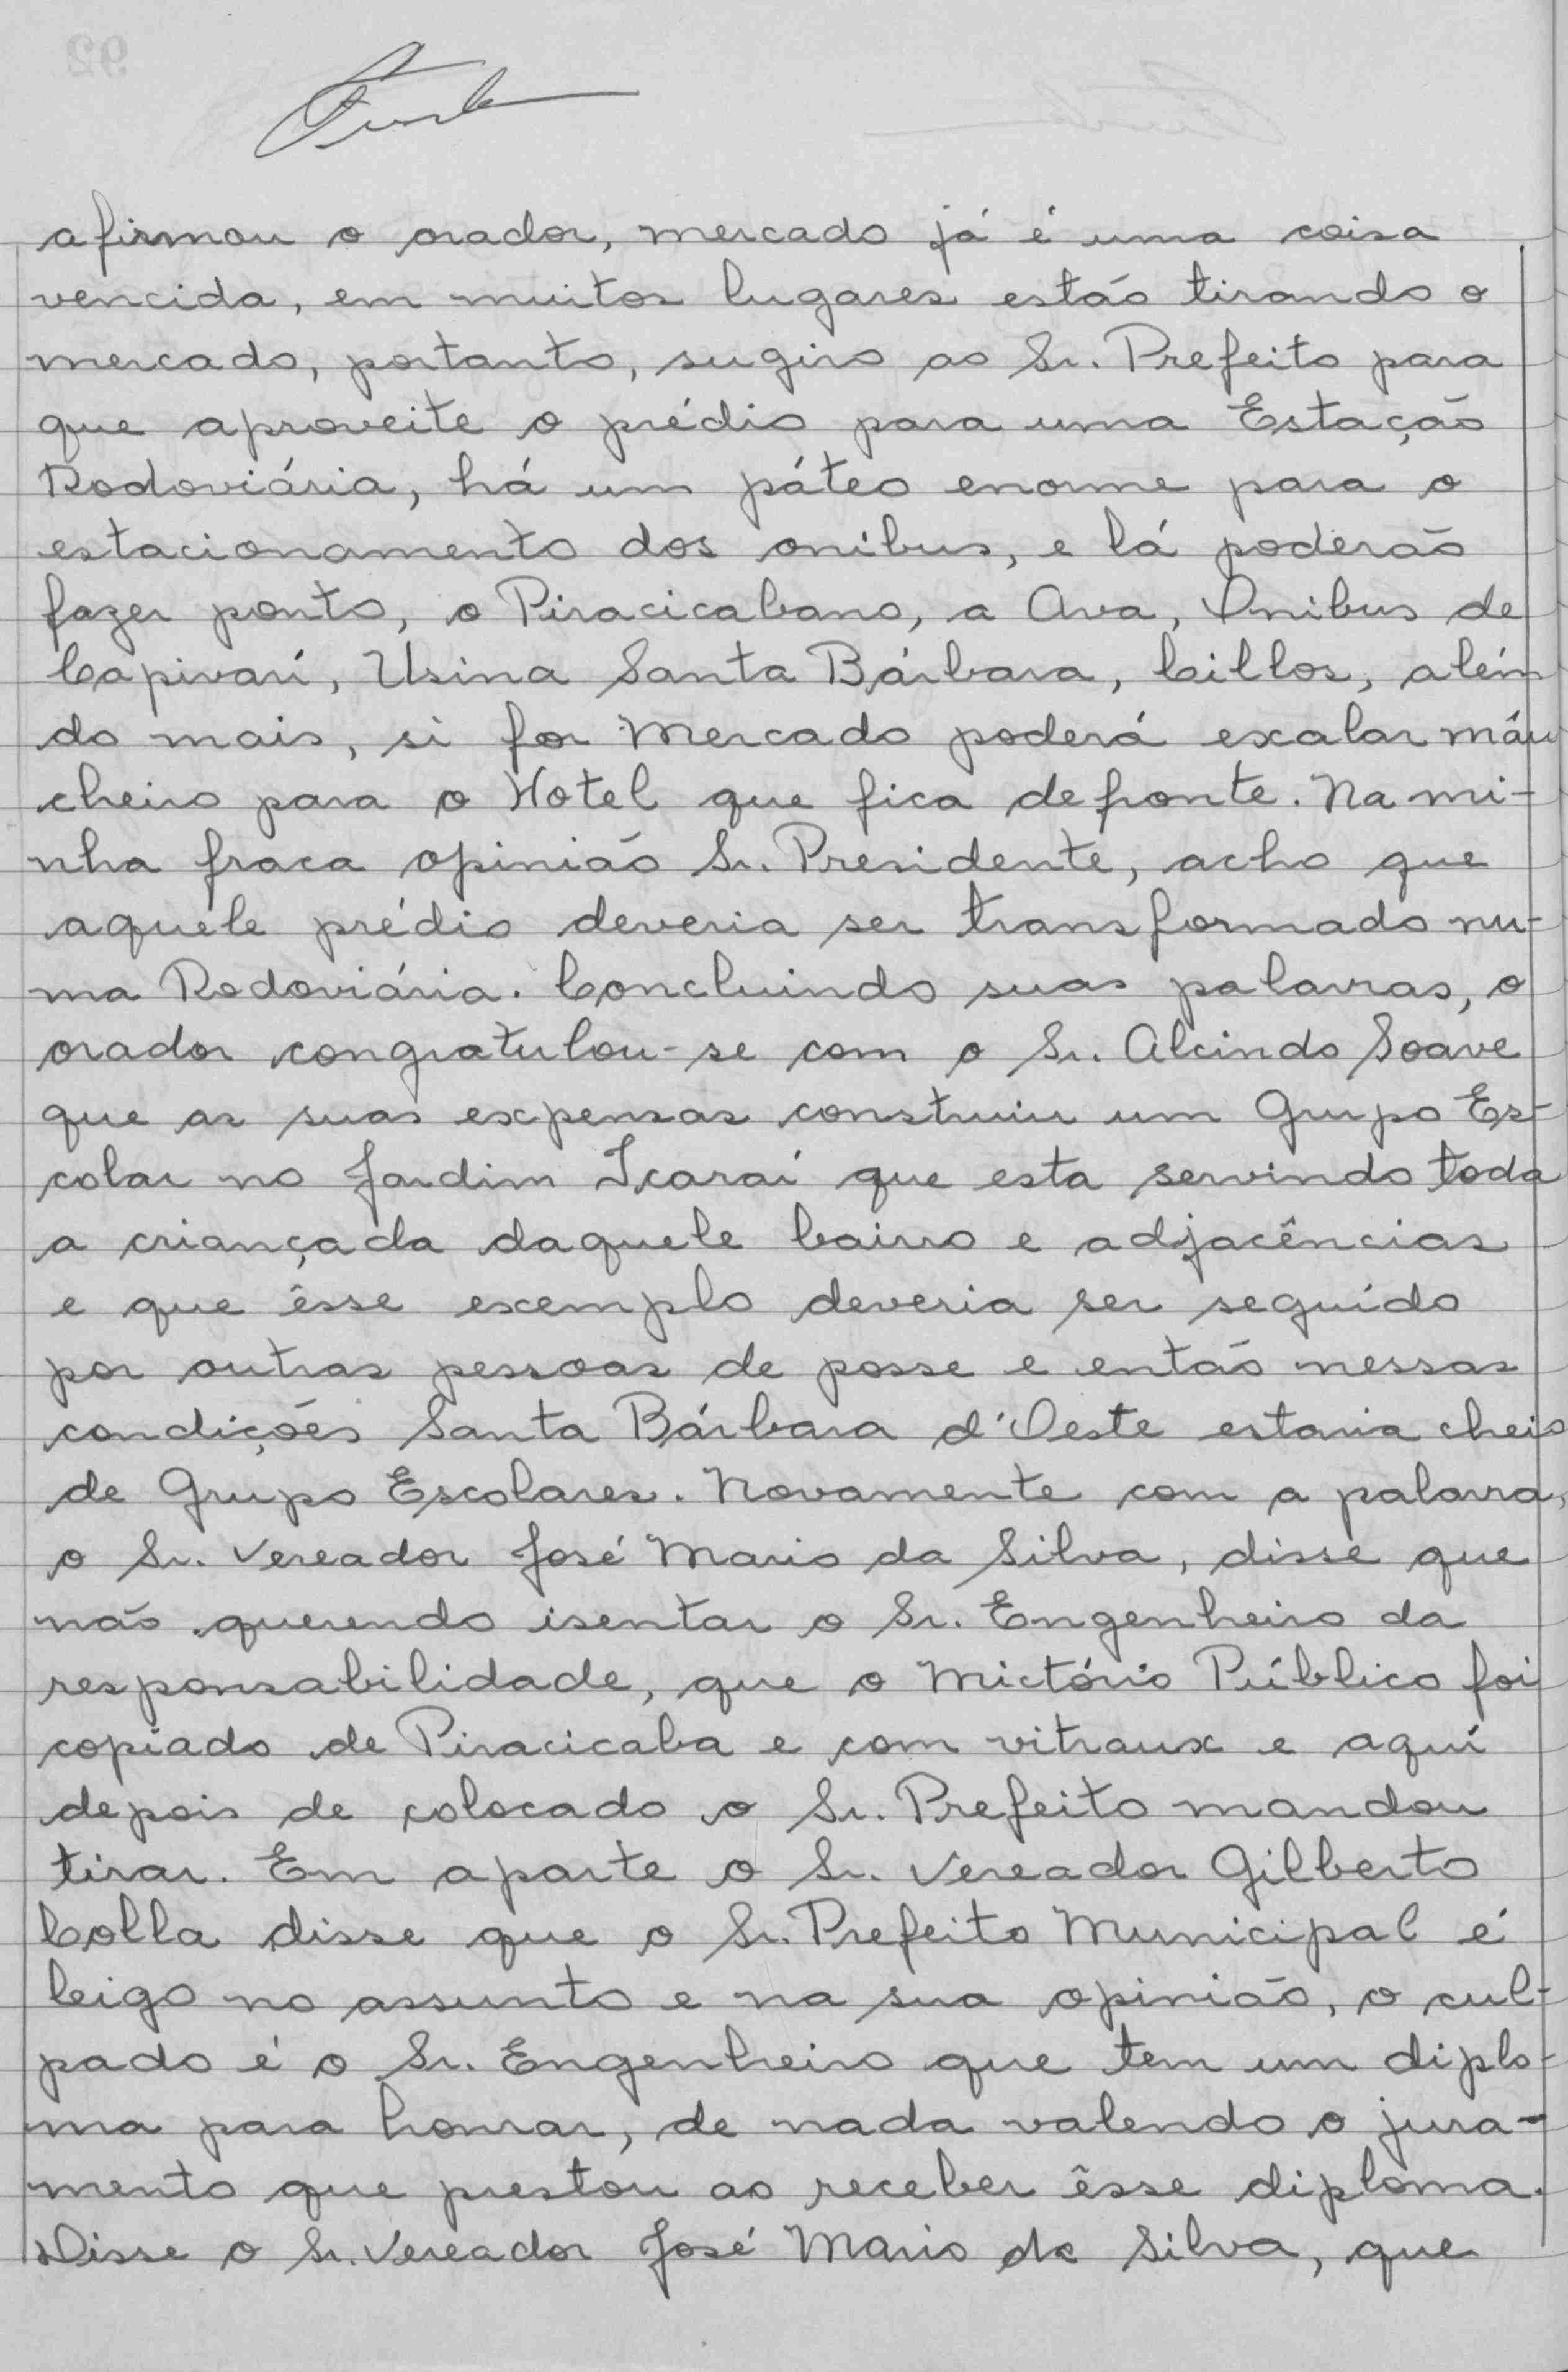 afirmou o orador, mercado já é uma coisa
vencida, em muitos lugares estão tirando o
mercado, portanto, sugiro ao Sr. Prefeito para
que aproveite o prédio para uma Estação
Rodoviária, há um páteo enorme para o
estacionamento dos onibus, e lá poderão
fazer ponto, o Piracicabano, a Ava, Onibus de
Capivarí, Usina Santa Bárbara, Cillos, além
do mais, si for Mercado poderá exalar máu
cheiro para o Hotel que fica defronte. Na mi-
nha fraca opinião Sr. Presidente, acho que
aquêle prédio deveria ser transformado nu-
ma Rodoviária. Concluindo suas palavras, o
orador congratulou-se com o Sr. Alcindo Soave
que as suas expensas construiu um Grupo Es-
colar no Jardim Icaraí que esta servindo toda
a criançada daquele bairro e adjacências
e que êsse exemplo deveria ser seguído
por outras pessoas de posse e então nessas
condições Santa Bárbara d'Oeste estaria cheio
de Grupo Escolares. Novamente com a palavra,
o Sr. Vereador José Mario da Silva, disse que
não querendo isentar o Sr. Engenheiro da
responsabilidade, que o Mictório Público foi
copiado de Piracicaba e com vitraux e aquí
depois de colocado o Sr. Prefeito mandou
tirar. Em aparte o Sr. Vereador Gilberto
Colla disse que o Sr. Prefeito Municipal é
leigo no assunto e na sua opinião, o cul-
pado é o Sr. Engenheiro que tem um diplo-
ma para honrar, de nada valendo o jura-
mento que prestou ao receber êsse diploma.
Disse o Sr. Vereador José Mario da Silva, que